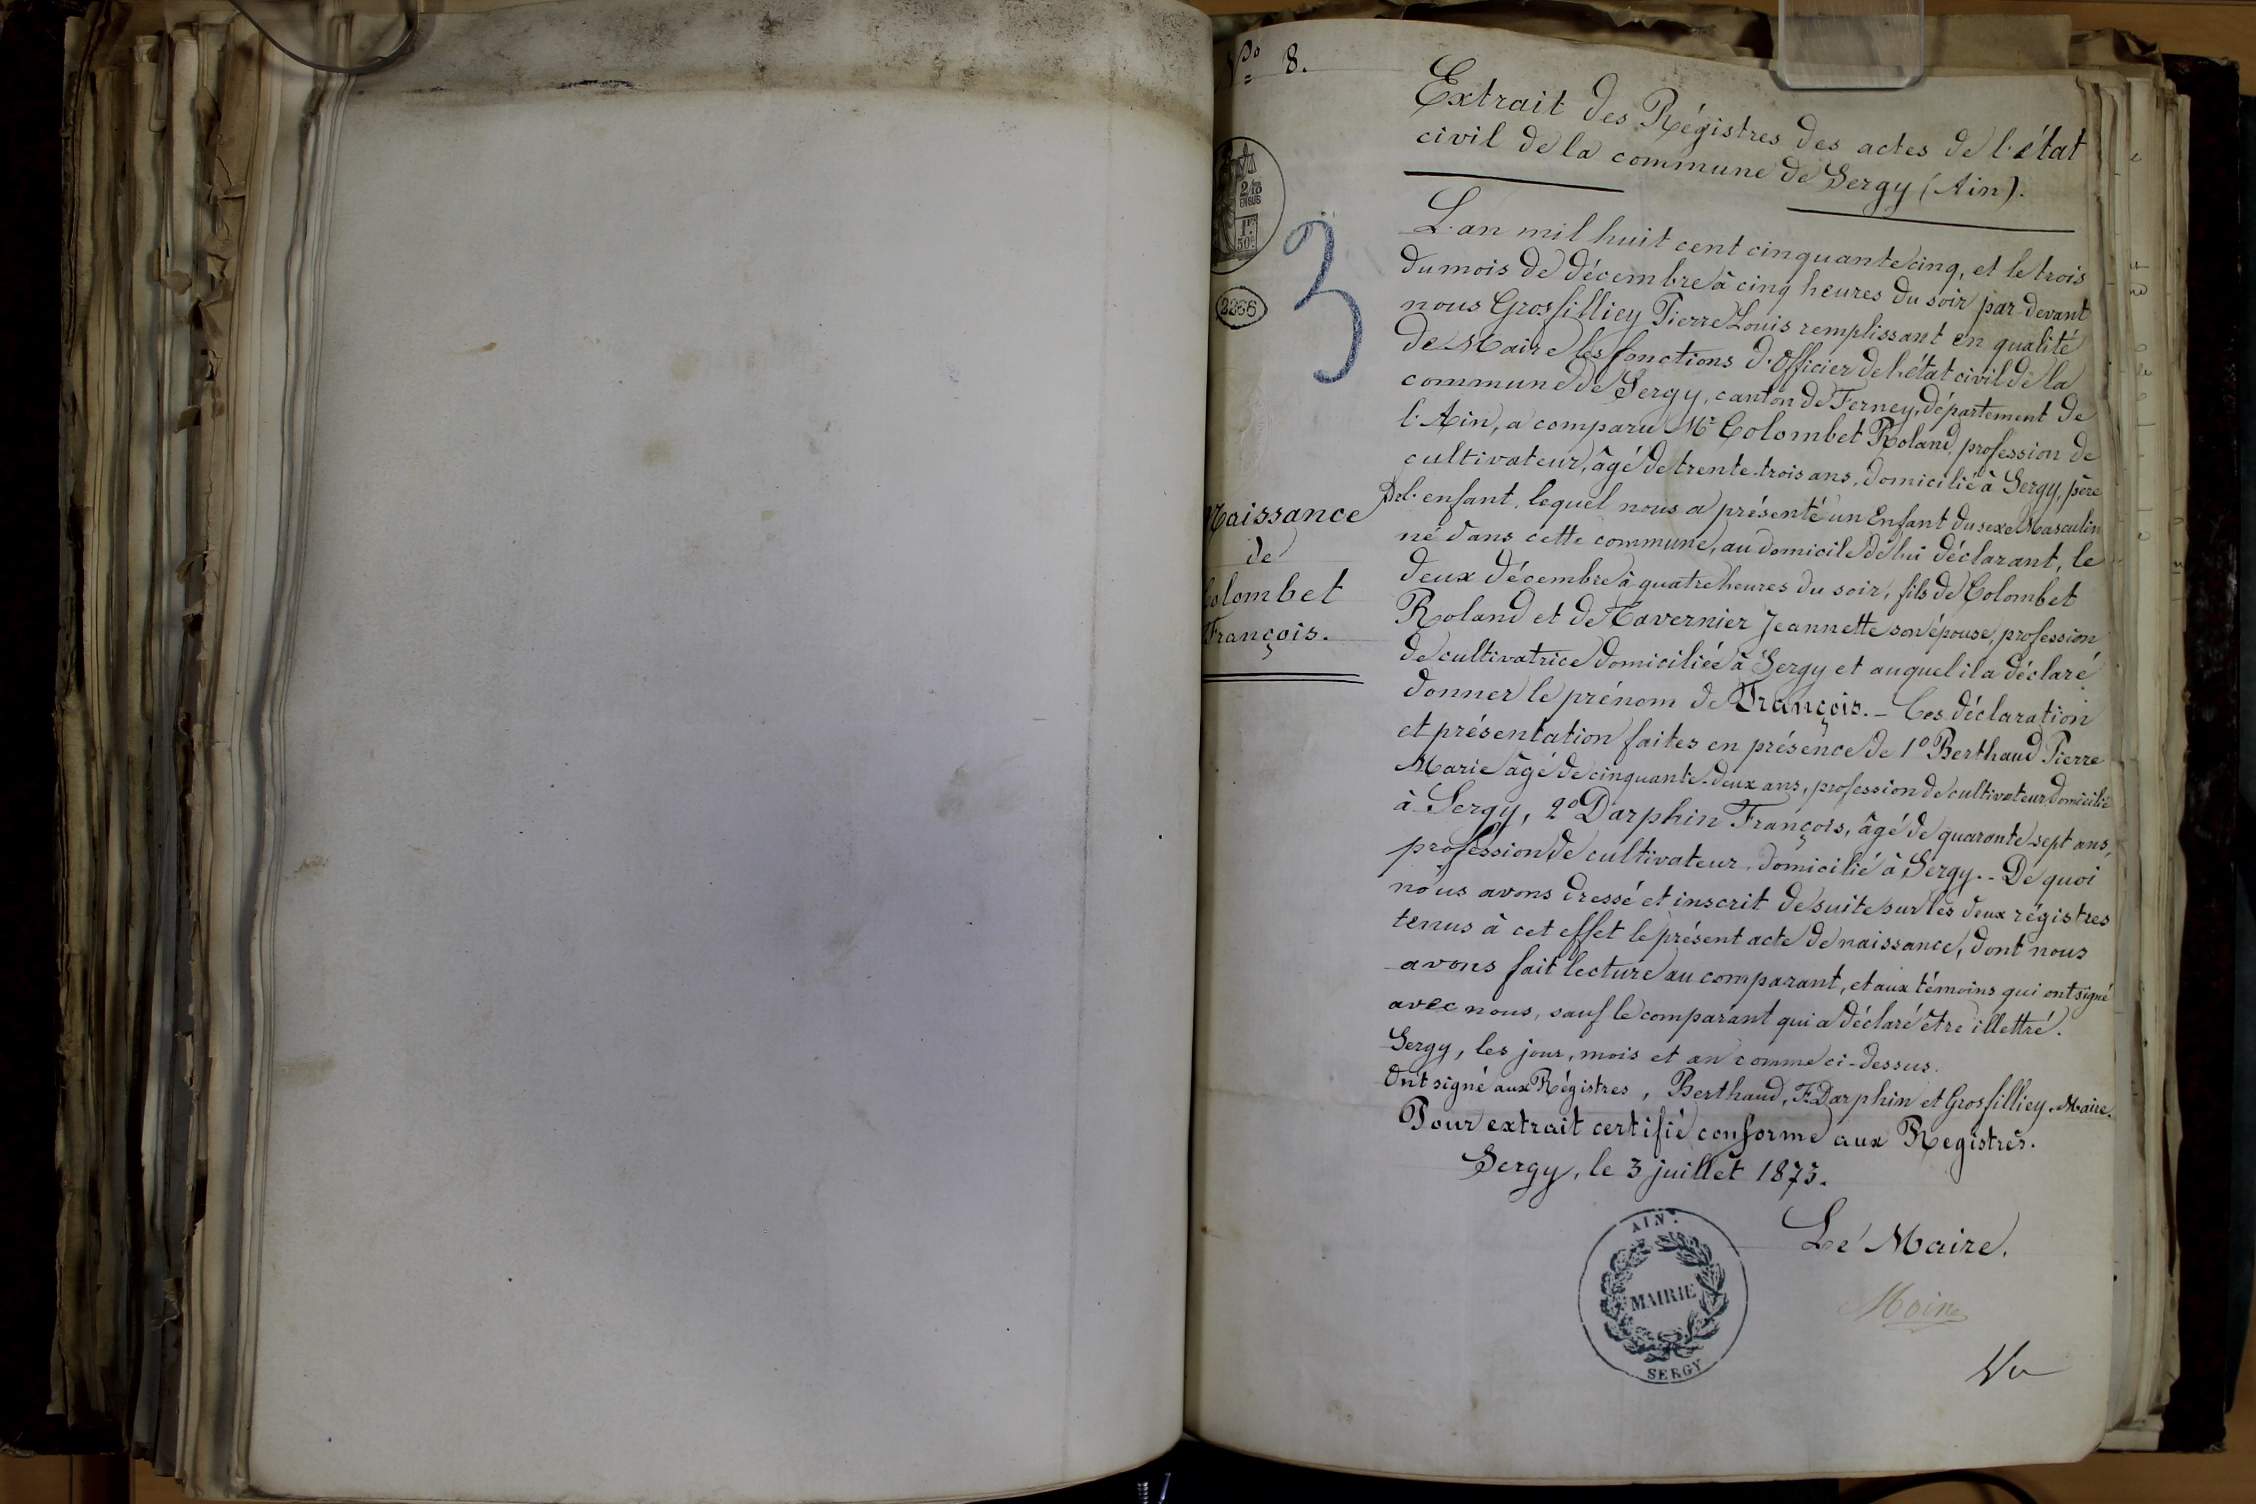 No 8.
Extrait des Régistres des actes de l'état
civil de la commune de Sergy (Ain).
2/10
EN SUS
1 F.
50 c.
3
L'an mil huit cent cinquante cinq, et le trois
du mois de décembre à cinq heures du soir par-devant
nous Grosfilliey Pierre Louis remplissant en qualité
de Maire les fonctions d'Officier de l'état civil de la
commune de Sergy, canton de Ferney, département de
l'Ain, a comparu Mr Colombet Roland, profession de
cultivateur, âgé de trente-trois ans, domicilié à Sergy, père
de l'enfant, lequel nous a présenté un Enfant du sexe Masculin
né dans cette commune, au domicile de lui déclarant, le
deux décembre à quatre heures du soir, fils de Colombet
Roland et de Tavernier Jeannette son épouse, profession
de cultivatrice domiciliée à Sergy et auquel il a déclaré
donner le prénom de François. _ Ces déclaration
et présentation faites en présence de 1o Berthaud Pierre
Marie âgé de cinquante-deux ans, profession de cultivateur, domicilié
à Sergy, 2o Darphin François, âgé de quarante sept ans,
profession de cultivateur, domicilié à Sergy. - De quoi
nous avons dressé et inscrit de suite sur les deux régistres
tenus à cet effet le présent acte de naissance, dont nous
avons fait lecture au comparant, et aux témoins qui ont signé
avec nous, sauf le comparant qui a déclaré être illettré.
Sergy, les jour, mois et an comme ci-dessus.
Ont signé aux Régistres, Berthaud, F. Darphin et Grosfilliey, Maire.
Pour extrait certifié conforme aux Registres.
Sergy, le 3 juillet 1873.
Le Maire.
Naissance
de
Colombet
François.
AIN
MAIRIE
SERGY
Vu